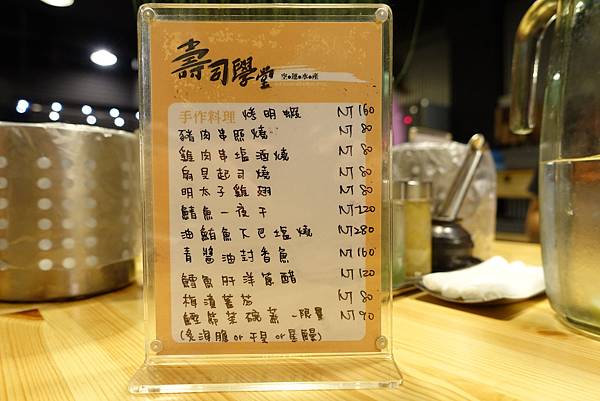 壽司學堂
空運水產
手作料理 烤明蝦 NT 160
豬肉串照燒 NT 80
雞肉串塩酒燒 NT 80
扇貝起司燒 NT 80
明太子雞翅 NT 80
鯖魚一夜干 NT 120
油魽魚下巴塩燒 NT 280
青醬油封香魚 NT 160
鱈魚肝洋蔥醋 NT 120
梅漬蕃茄 NT 80
鰹節茶碗蒸 -限量 NT 90